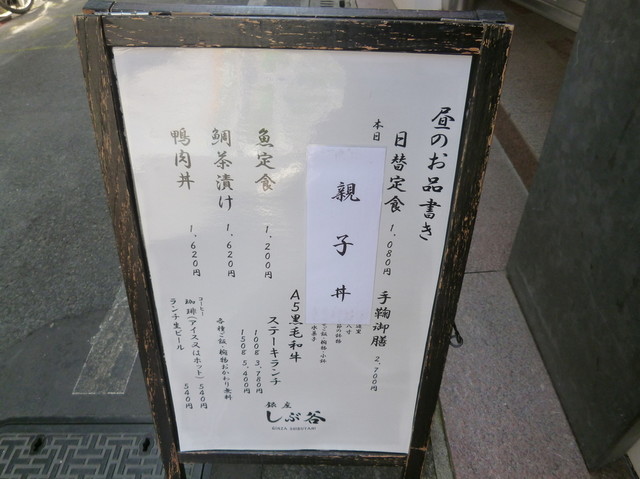 昼のお品書き
日替定食 1,080円
本日
親子丼
魚定食 1,200円
鯛茶漬け 1,620円
鴨肉丼 1,620円
手鞠御膳 2,700円
A5黒毛和牛
ステーキランチ
100g 3,780円
150g 5,400円
各種ご飯・椀物おかわり無料
コーヒー
珈琲(アイス又はホット) 540円
ランチ生ビール 540円
銀座
しぶ谷
GINZA SHIBUTANI